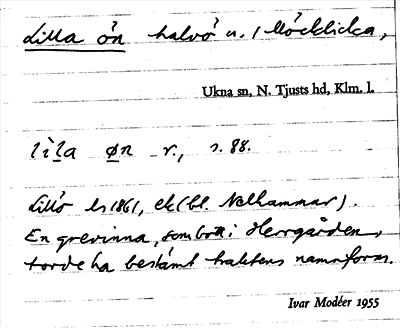 Lilla ön halvö n. i Möcklicka,
Ukna sn, N. Tjusts hd, Klm. l.
lìla øn r., s. 88.
Lillö ls 1861, ek (bl. Nelhammar).
En grevinna, som bott i Herrgården,
torde ha bestämt halvöns namnform.
Ivar Modéer 1955